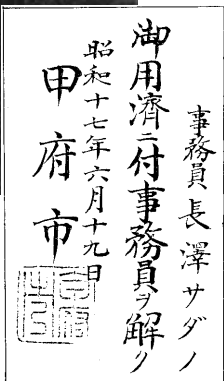 事務員長澤サダノ
御用濟ニ付事務員ヲ解ク
昭和十七年六月十九日
甲府市